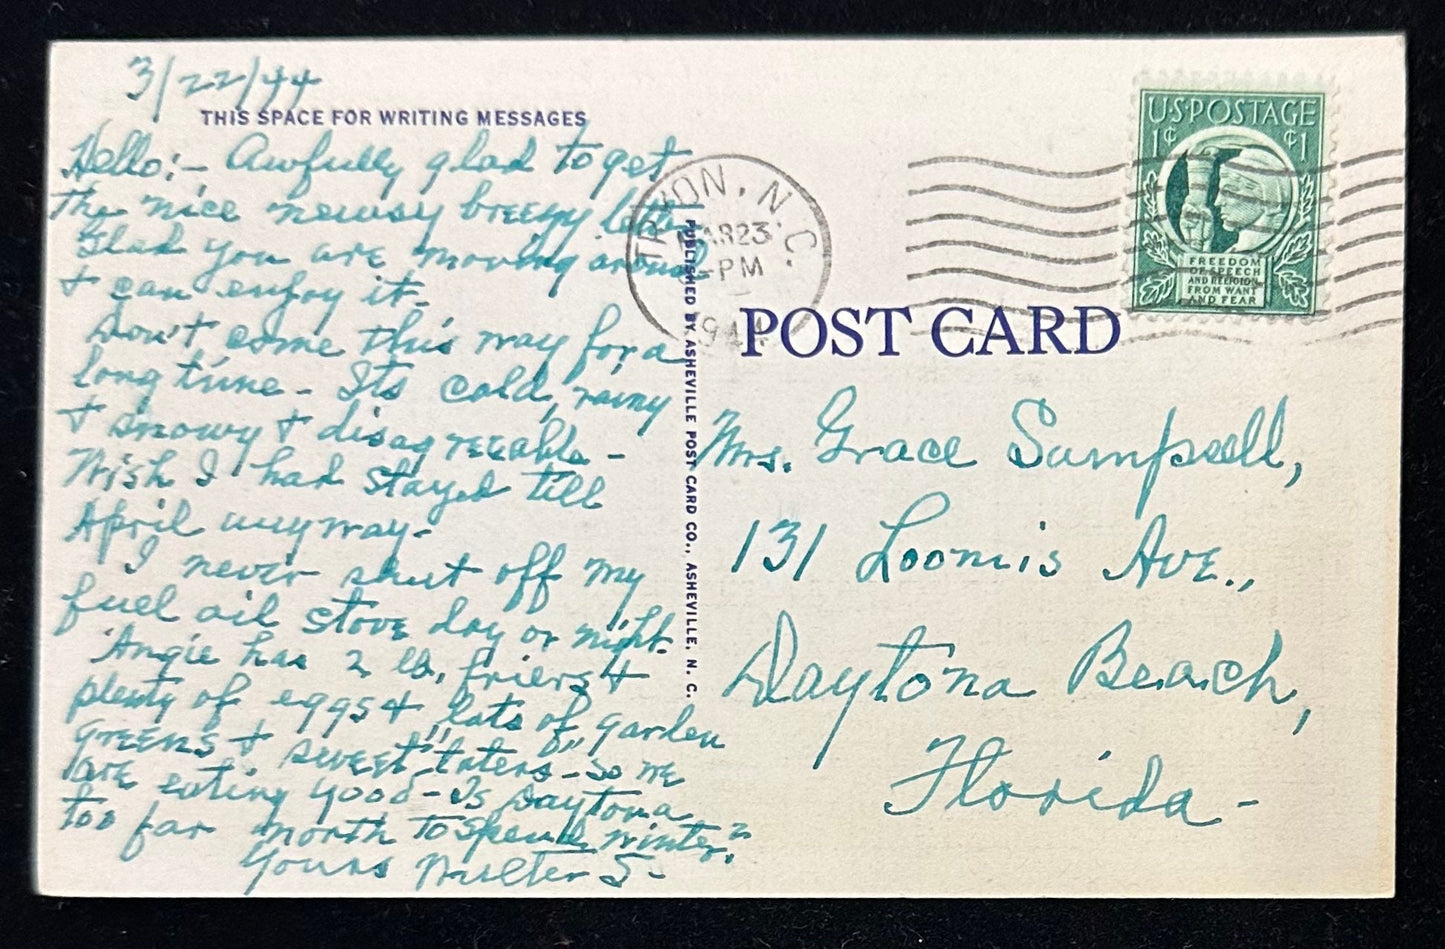 3/22/44
THIS SPACE FOR WRITING MESSAGES
Hello:- Awfully glad to get
the nice newsy breezy letter
Glad you are moving around
+ can enjoy it-
Don't come this way for a
long time - Its cold, rainy
+ snowy + disagreeable -
Wish I had stayed till
April anyway-
I never shut off my
fuel oil stove day or night.
Angie has 2 lb. friers +
plenty of eggs + "lots of garden
greens + sweet "taters" - so we
are eating good - Is Daytona
too far north to spend winter?
Yours Walter S-
PUBLISHED BY ASHEVILLE POST CARD CO., ASHEVILLE, N. C.
TRYON, N.C.
MAR 23
PM
1944
U.S. POSTAGE
1¢ ¢1
FREEDOM
OF SPEECH
AND RELIGION
FROM WANT
AND FEAR
POST CARD
Mrs. Grace Sampsell,
131 Loomis Ave.,
Daytona Beach,
Florida -